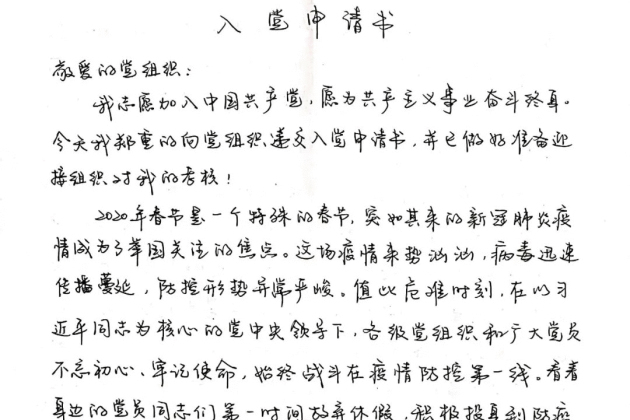 入党申请书
敬爱的党组织：
我志愿加入中国共产党，愿为共产主义事业奋斗终身。
今天我郑重的向党组织递交入党申请书，并已做好准备迎
接组织对我的考核！
2020年春节是一个特殊的春节，突如其来的新冠肺炎疫
情成为了举国关注的焦点。这场疫情来势汹汹，病毒迅速
传播蔓延，防控形势异常严峻。值此危难时刻，在以习
近平同志为核心的党中央领导下，各级党组织和广大党员
不忘初心、牢记使命，始终战斗在疫情防控第一线。看着
身边的党员同志们第一时间放弃休假，积极投身到防疫